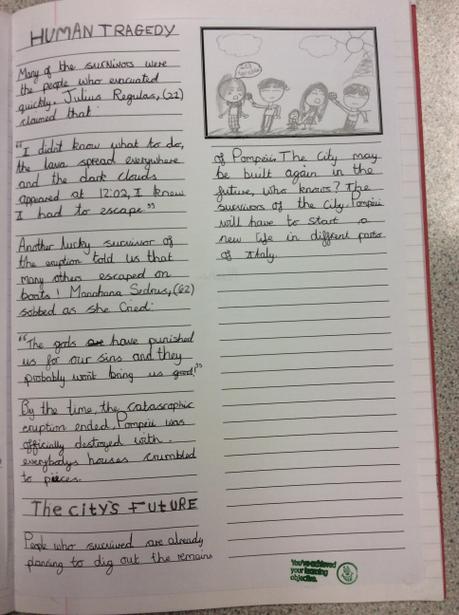 HUMAN TRAGEDY
Many of the survivors were
the people who evacuated
quickly. Julius Regulas, (22)
claimed that:
"I didn't know what to do,
the lava spread everywhere
and the dark clouds
appeared at 12:02, I knew
I had to escape"
Another lucky survivor of
the eruption told us that
many others escaped on
boats! Manahana Sedrus, (62)
sobbed as she cried:
"The gods have punished
us for our sins and they
probably won't bring us good!"
By the time, the catasrophic
eruption ended, Pompeii was
officially destroyed with
everybodys houses crumbled
to pieces.
The City's FUTURE
People who survived are already
planning to dig out the remains
of Pompeii. The City may
be built again in the
future, who knows? The
survivors of the city Pompeii
will have to start a
new life in different parts
of Italy.
You've achieved
your learning
objective.